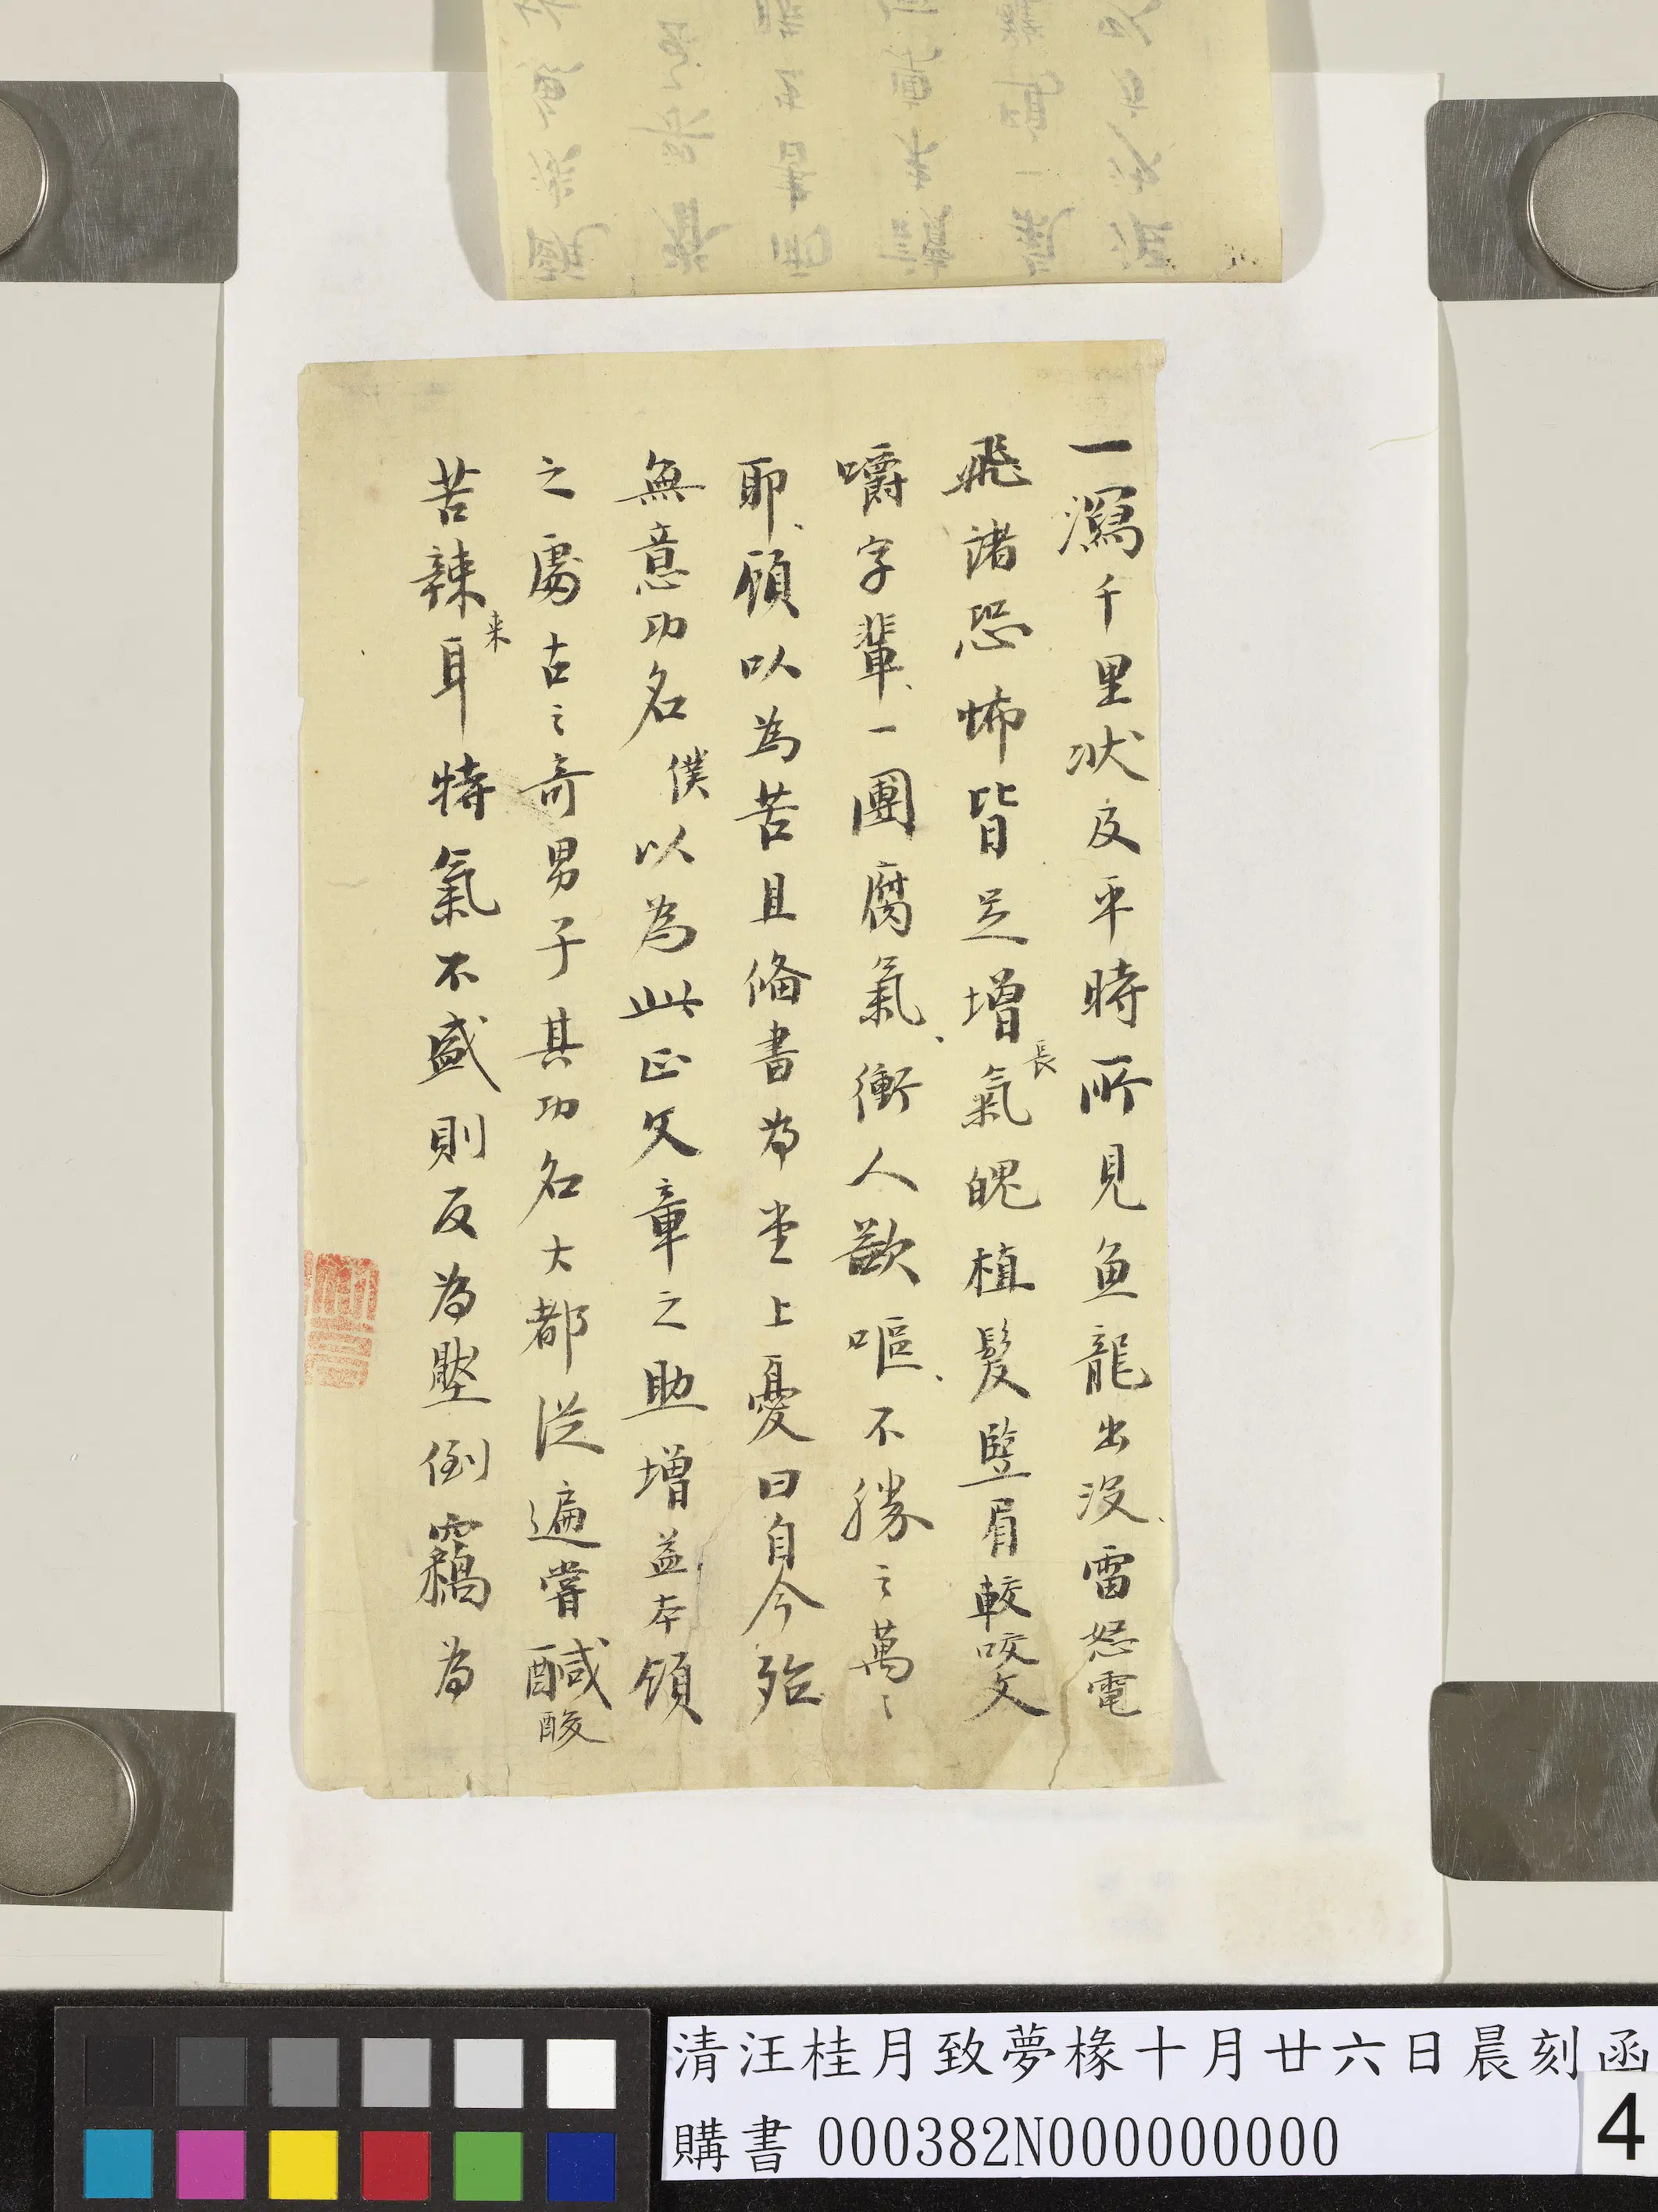 一瀉千里狀及平時所見魚龍出沒、雷怒電
飛諸恐怖皆足增長氣魄植髮豎眉較咬文
嚼字輩、一團腐氣、衝人欲嘔、不勝之萬〻
耶、頋以為苦且俻書為堂上憂曰自今殆
無意功名僕以為此正文章之助增益本領
之處古之奇男子其功名大都從遍嘗鹹酸
苦辣来耳特氣不盛則反為壓倒竊為
清汪桂月致夢椽十月廿六日晨刻函
購書 000382N000000000
4